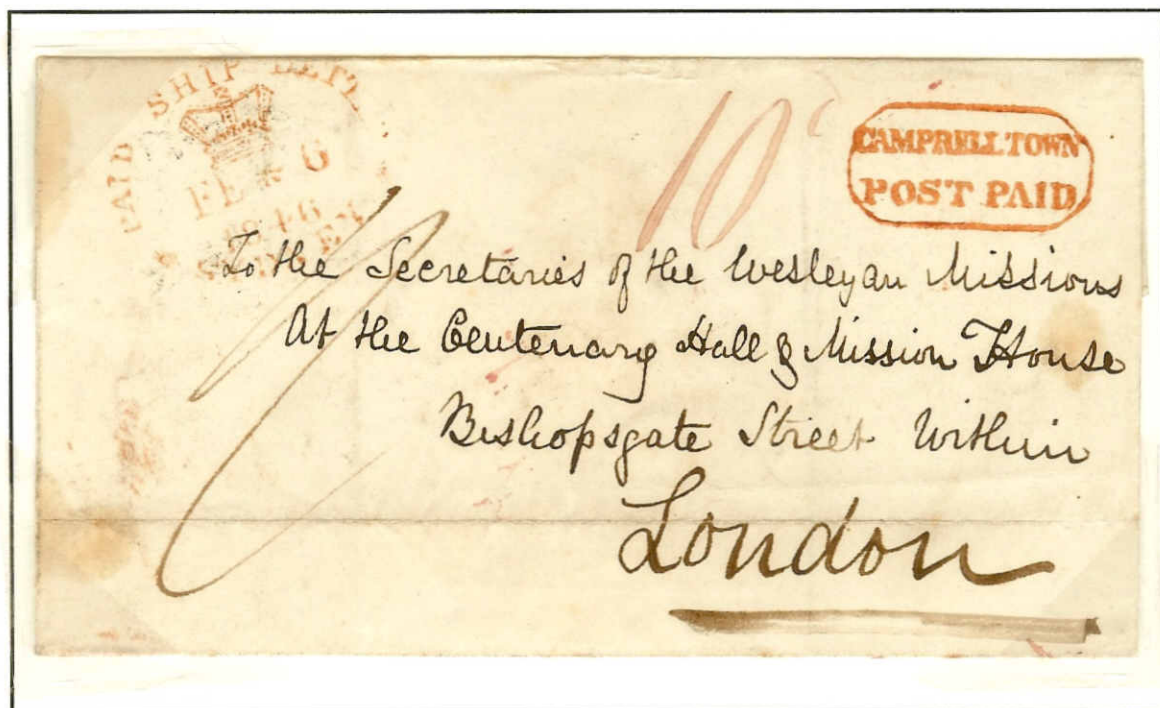 PAID SHIP LETTER
FE 6
1846
SYDNEY
10
CAMPBELL TOWN
POST PAID
To the Secretaries of the Wesleyan Missions
At the Centenary Hall & Mission House
Bishopsgate Street Within
London